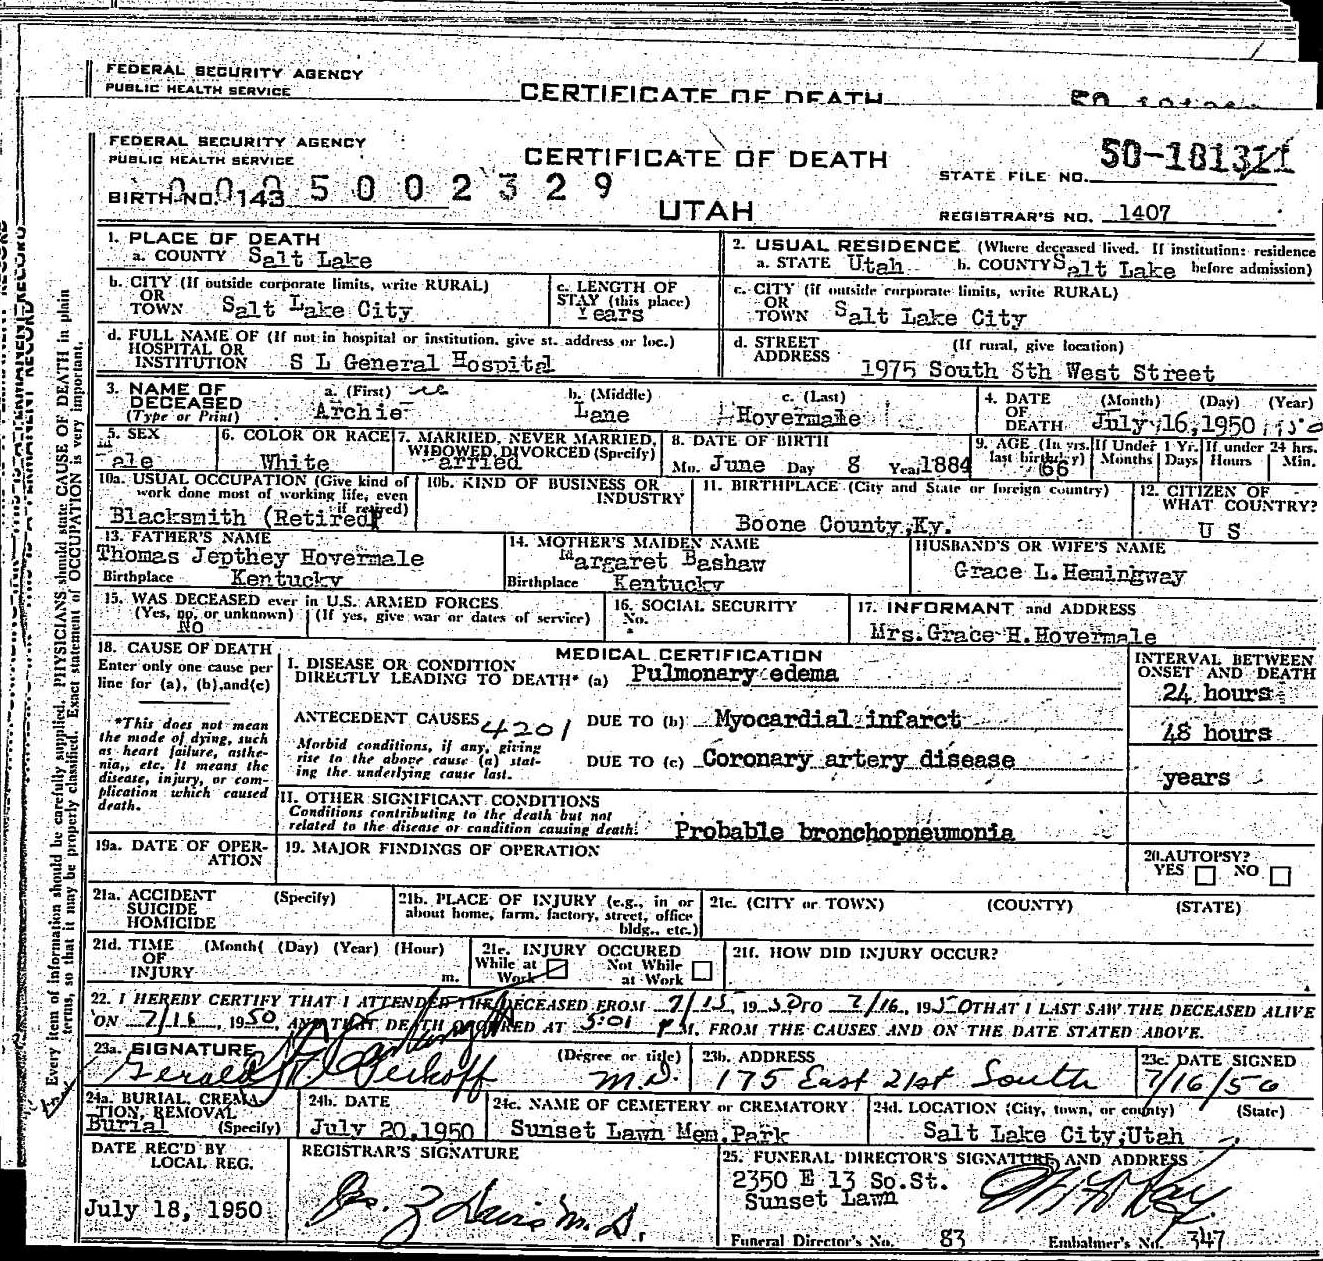 FEDERAL SECURITY AGENCY
PUBLIC HEALTH SERVICE
CERTIFICATE OF DEATH
FEDERAL SECURITY AGENCY
PUBLIC HEALTH SERVICE
CERTIFICATE OF DEATH
50-181311
STATE FILE NO.
BIRTH NO. 143 5 0 0 2 3 2 9
UTAH
REGISTRAR'S NO. 1407
1. PLACE OF DEATH
a. COUNTY Salt Lake
2. USUAL RESIDENCE (Where deceased lived. If institution: residence
a. STATE Utah b. COUNTY Salt Lake before admission)
b. CITY (If outside corporate limits, write RURAL)
OR
TOWN Salt Lake City
c. LENGTH OF
STAY (this place)
Years
c. CITY (if outside corporate limits, write RURAL)
OR
TOWN Salt Lake City
d. FULL NAME OF (If not in hospital or institution, give st. address or loc.)
HOSPITAL OR
INSTITUTION S L General Hospital
d. STREET (If rural, give location)
ADDRESS
1975 South 8th West Street
3. NAME OF
DECEASED
(Type or Print)
a. (First)
Archie
b. (Middle)
Lane
c. (Last)
Hovermale
4. DATE (Month) (Day) (Year)
OF
DEATH July 16,1950
5. SEX
Male
6. COLOR OR RACE
White
7. MARRIED, NEVER MARRIED,
WIDOWED, DIVORCED (Specify)
Married
8. DATE OF BIRTH
Mo. June Day 8 Year 1884
9. AGE (In yrs.
last birthday)
66
If Under 1 Yr.
Months Days
If under 24 hrs.
Hours Min.
10a. USUAL OCCUPATION (Give kind of
work done most of working life, even
if retired)
Blacksmith (Retired)
10b. KIND OF BUSINESS OR
INDUSTRY
11. BIRTHPLACE (City and State or foreign country)
Boone County,Ky.
12. CITIZEN OF
WHAT COUNTRY?
U S
13. FATHER'S NAME
Thomas Jepthey Hovermale
Birthplace Kentucky
14. MOTHER'S MAIDEN NAME
Margaret Bashaw
Birthplace Kentucky
HUSBAND'S OR WIFE'S NAME
Grace L.Hemingway
15. WAS DECEASED ever in U.S. ARMED FORCES
(Yes, no, or unknown) (If yes, give war or dates of service)
No
16. SOCIAL SECURITY
No.
17. INFORMANT and ADDRESS
Mrs.Grace H.Hovermale
18. CAUSE OF DEATH
Enter only one cause per
line for (a), (b),and(c)
*This does not mean
the mode of dying, such
as heart failure, asthe-
nia,, etc. It means the
disease, injury, or com-
plication which caused
death.
MEDICAL CERTIFICATION
I. DISEASE OR CONDITION
DIRECTLY LEADING TO DEATH* (a) Pulmonary edema
INTERVAL BETWEEN
ONSET AND DEATH
24 hours
ANTECEDENT CAUSES 4201 DUE TO (b) Myocardial infarct
48 hours
Morbid conditions, if any, giving
rise to the above cause (a) stat-
ing the underlying cause last.
DUE TO (c) Coronary artery disease
years
II. OTHER SIGNIFICANT CONDITIONS
Conditions contributing to the death but not
related to the disease or condition causing death. Probable bronchopneumonia
19a. DATE OF OPER-
ATION
19. MAJOR FINDINGS OF OPERATION
20. AUTOPSY?
YES NO
21a. ACCIDENT (Specify)
SUICIDE
HOMICIDE
21b. PLACE OF INJURY (e.g., in or
about home, farm, factory, street, office
bldg., etc.)
21c. (CITY or TOWN) (COUNTY) (STATE)
21d. TIME (Month( (Day) (Year) (Hour)
OF
INJURY m.
21e. INJURY OCCURED
While at Work
Not While at Work
21f. HOW DID INJURY OCCUR?
22. I HEREBY CERTIFY THAT I ATTENDED THE DECEASED FROM 7/15, 1950 TO 7/16, 1950 THAT I LAST SAW THE DECEASED ALIVE
ON 7/16, 1950, AND THAT DEATH OCCURED AT 5:01 P M. FROM THE CAUSES AND ON THE DATE STATED ABOVE.
23a. SIGNATURE (Degree or title)
Gerald M.D.
23b. ADDRESS
175 East 21st South
23c. DATE SIGNED
7/16/50
24a. BURIAL, CREMA-
TION, REMOVAL
Burial (Specify)
24b. DATE
July 20,1950
24c. NAME OF CEMETERY or CREMATORY
Sunset Lawn Mem.Park
24d. LOCATION (City, town, or county) (State)
Salt Lake City,Utah
DATE REC'D BY
LOCAL REG.
July 18, 1950
REGISTRAR'S SIGNATURE
M.D.
25. FUNERAL DIRECTOR'S SIGNATURE AND ADDRESS
2350 E 13 So.St.
Sunset Lawn
Funeral Director's No. 83 Embalmer's No. 347
Every item of information should be carefully supplied. PHYSICIANS should state CAUSE OF DEATH in plain
terms, so that it may be properly classified. Exact statement of OCCUPATION is very important.